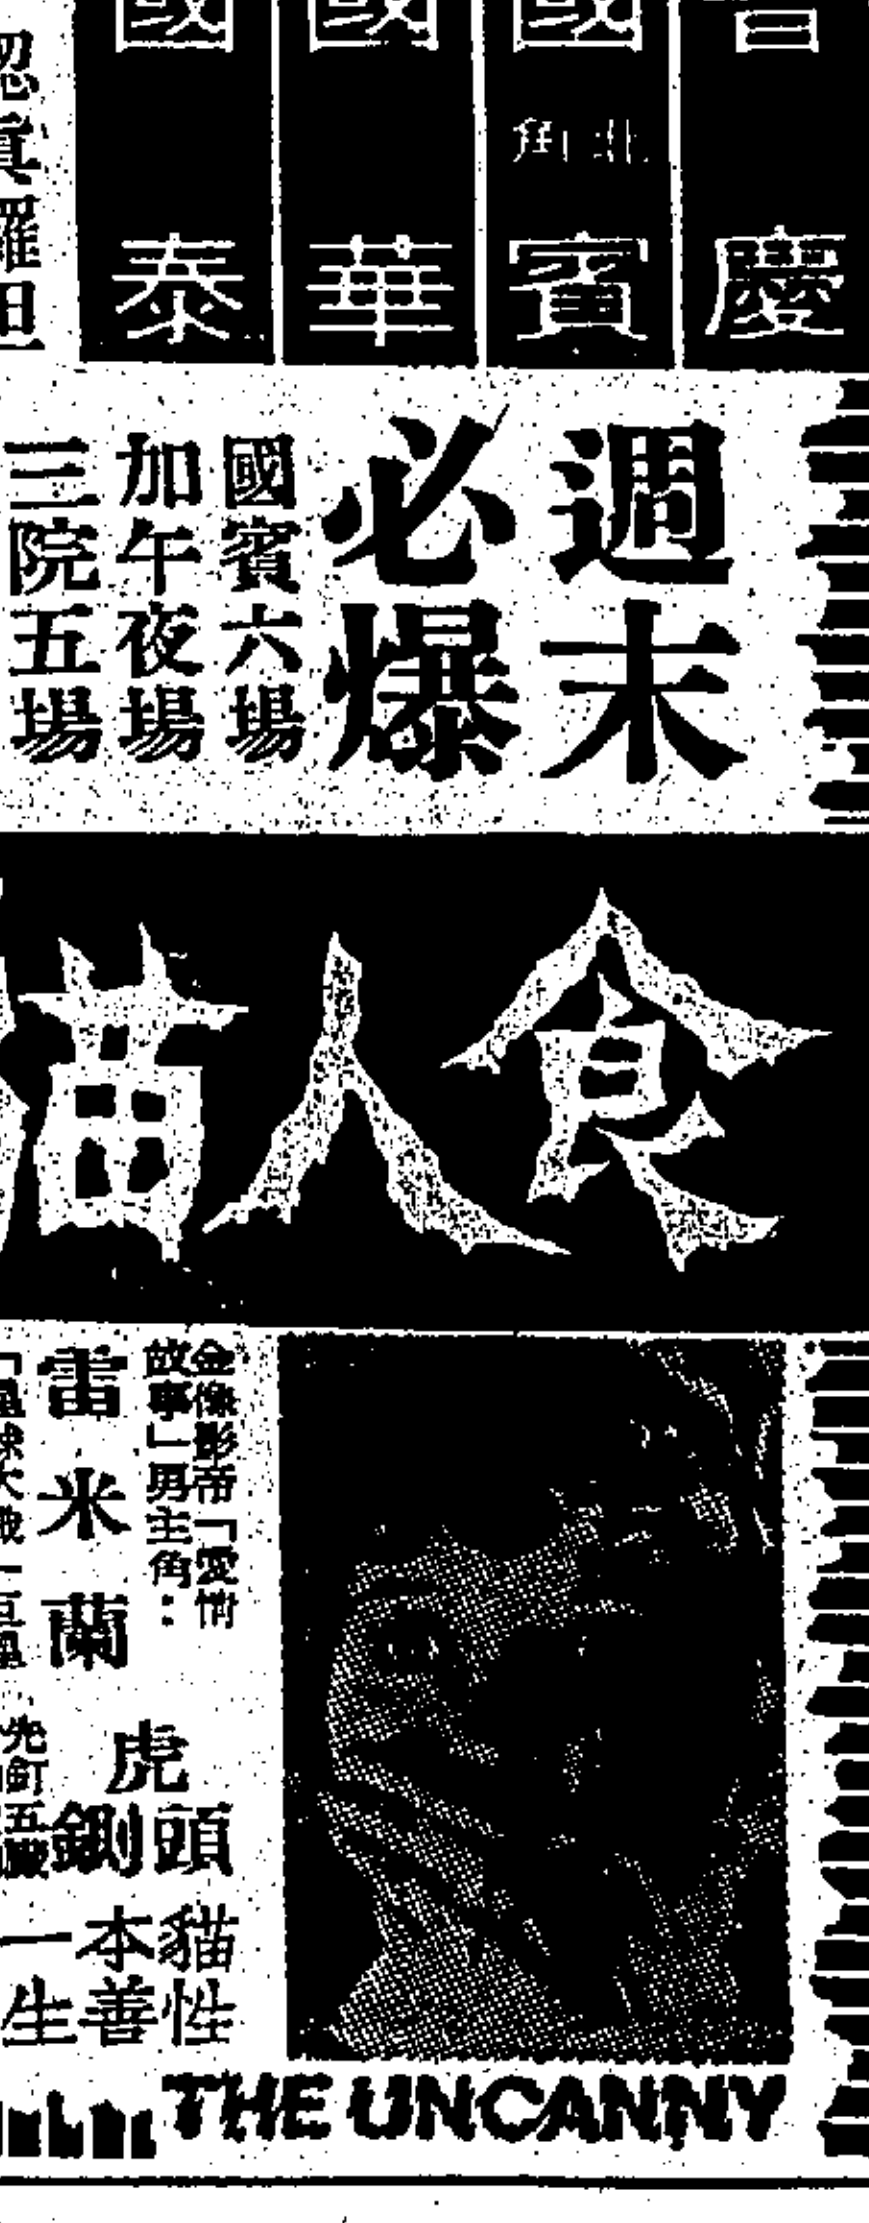 普慶
國賓
北角
國華
國泰
週末
必爆
國賓六場
加午夜場
三院五場
食人貓
金像影帝「愛情
故事」男主角：
雷米蘭
虎頭鍘
貓性
本善
一生
THE UNCANNY